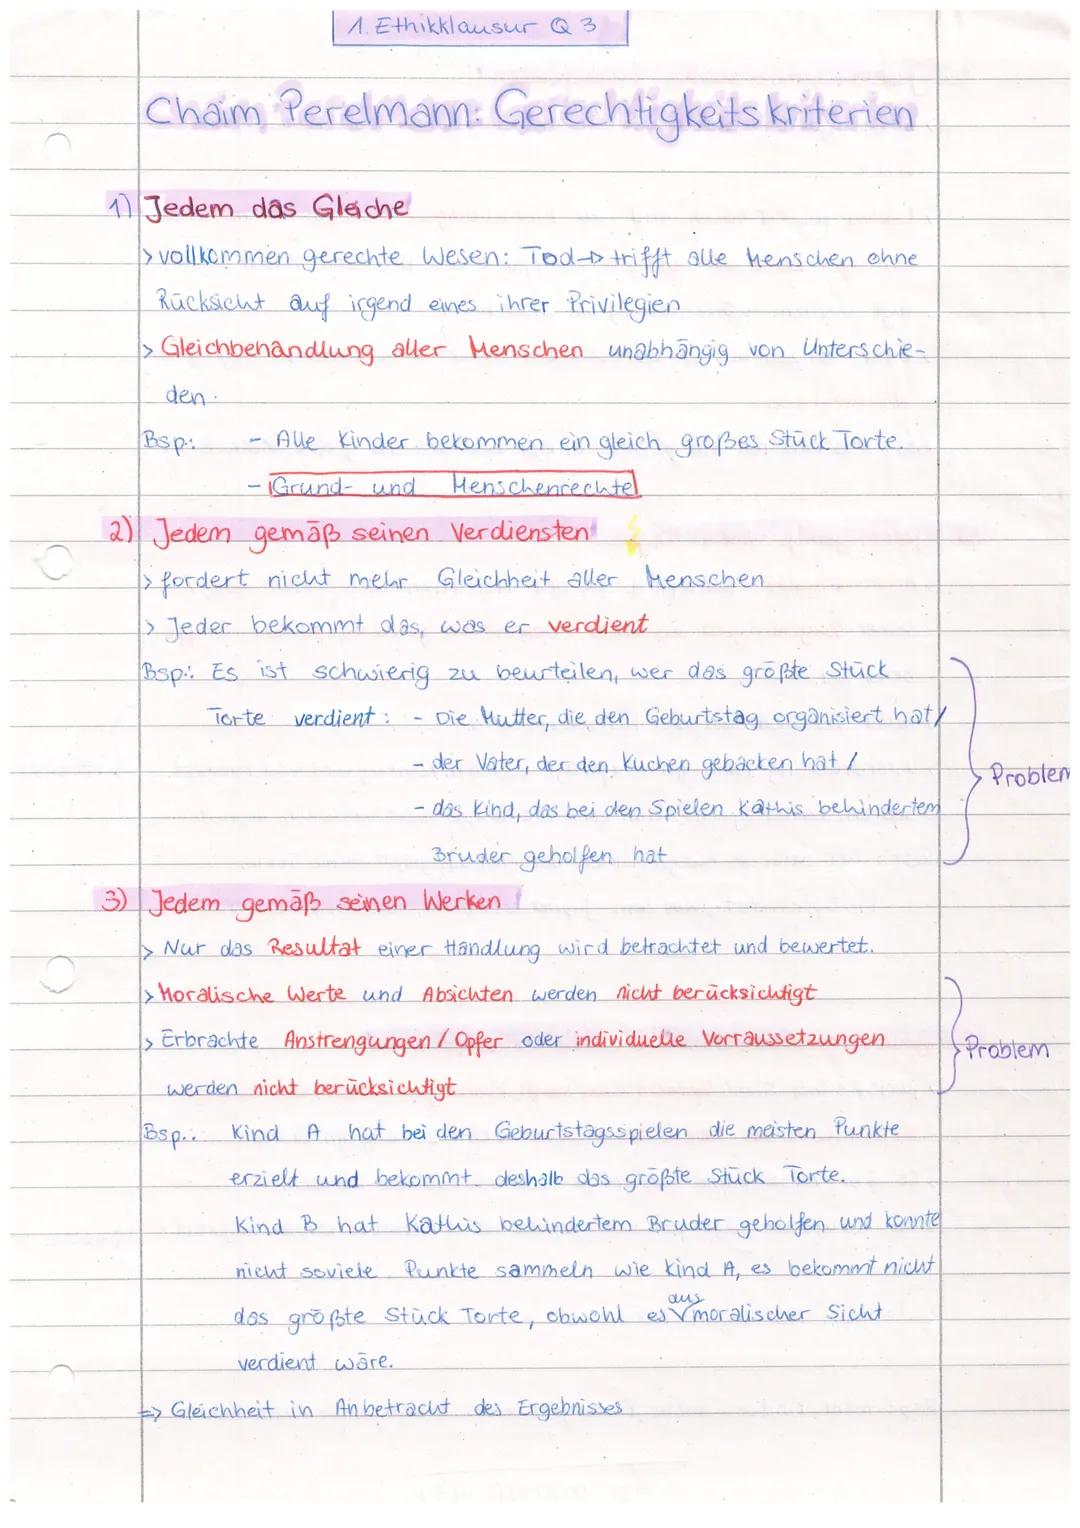 1. Ethikklausur Q 3
Chaim Perelmann: Gerechtigkeitskriterien
1) Jedem das Gleiche
> vollkommen gerechte Wesen: Tod → trifft alle Menschen ohne
Rücksicht auf irgend eines ihrer Privilegien
> Gleichbehandlung aller Menschen unabhängig von Unterschie-
den.
Bsp.: - Alle Kinder bekommen ein gleich großes Stück Torte.
- Grund- und Menschenrechte
2) Jedem gemäß seinen Verdiensten
> fordert nicht mehr Gleichheit aller Menschen
> Jeder bekommt das, was er verdient
Bsp.: Es ist schwierig zu beurteilen, wer das größte Stück
Torte verdient: - Die Mutter, die den Geburtstag organisiert hat/
- der Vater, der den Kuchen gebacken hat /
Problem
- das Kind, das bei den Spielen Kathis behindertem
Bruder geholfen hat
3) Jedem gemäß seinen Werken
> Nur das Resultat einer Handlung wird betrachtet und bewertet.
> Moralische Werte und Absichten werden nicht berücksichtigt
> Erbrachte Anstrengungen / Opfer oder individuelle Vorraussetzungen
Problem
werden nicht berücksichtigt
Bsp.: Kind A hat bei den Geburtstagsspielen die meisten Punkte
erzielt und bekommt deshalb das größte Stück Torte.
Kind B hat Kathis behindertem Bruder geholfen und konnte
nicht soviele Punkte sammeln wie Kind A, es bekommt nicht
das größte Stück Torte, obwohl es aus moralischer Sicht
verdient wäre.
=> Gleichheit in Anbetracht des Ergebnisses